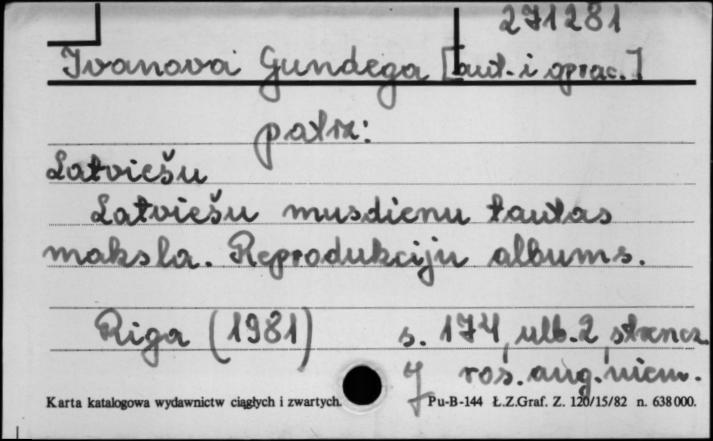 271281
Ivanova Gundega [aut. i oprac.]
patrz:
Latviešu
Latviešu musdienu tautas
maksla. Reprodukciju albums.
Riga (1981) s. 174, ulb. 2 strencz.
J ros. ang. niem.
Karta katalogowa wydawnictw ciągłych i zwartych. Pu-B-144 Ł.Z.Graf. Z. 120/15/82 n. 638000.